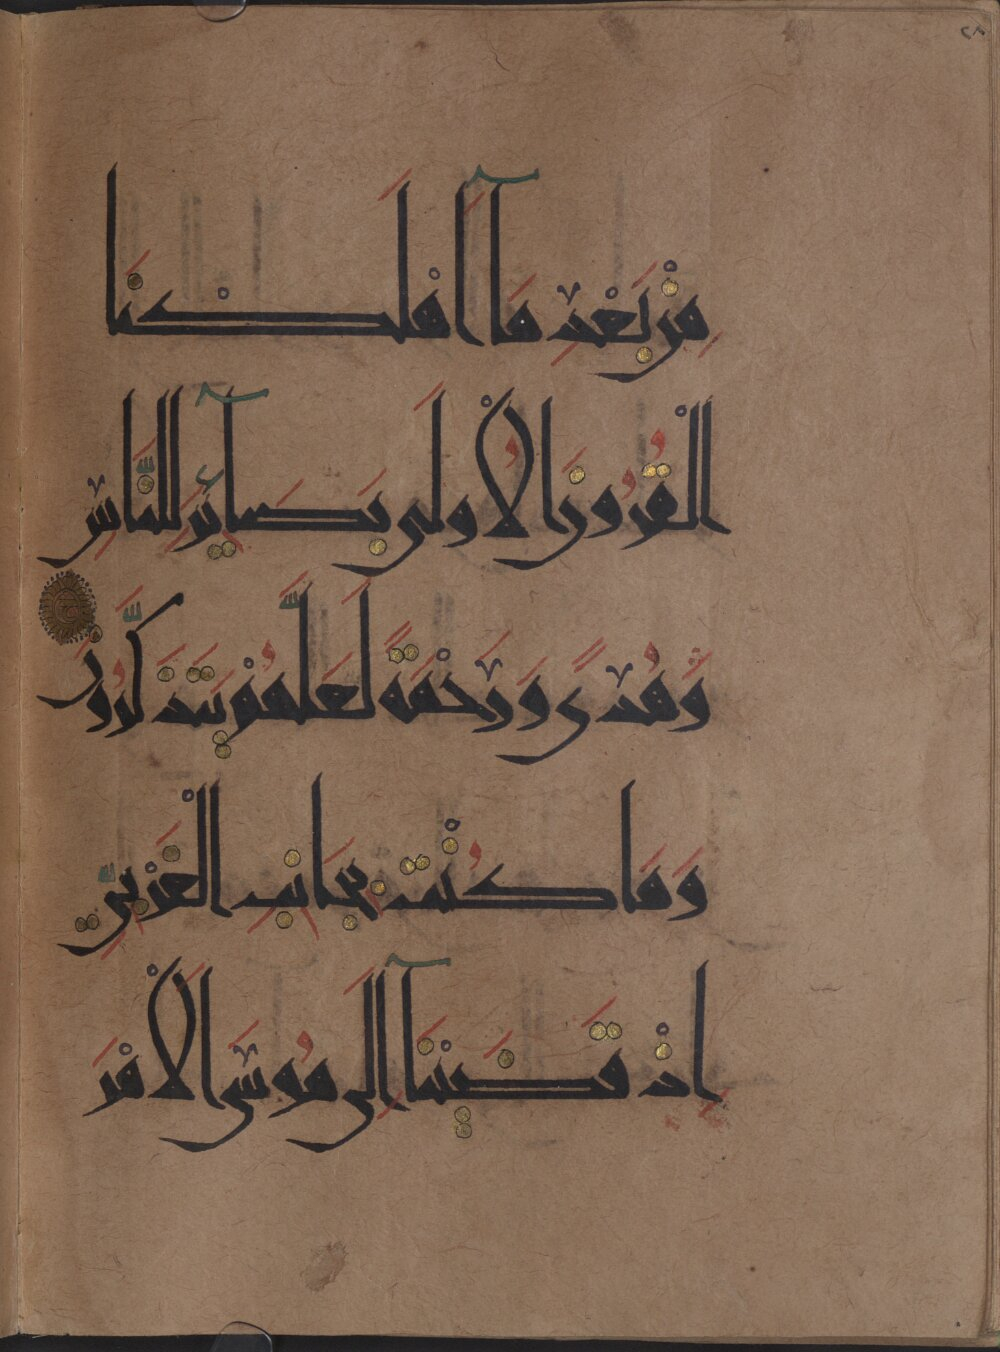 ٢٨
مِنْ بَعْدِ مَآ أَهْلَكْنَا
الْقُرُونَ الْأُولَى بَصَآئِرَ لِلنَّاسِ
وَهُدًى وَرَحْمَةً لَعَلَّهُمْ يَتَذَكَّرُونَ
وَمَا كُنْتَ بِجَانِبِ الْغَرْبِيِّ
إِذْ قَضَيْنَآ إِلَى مُوسَى الْأَمْرَ